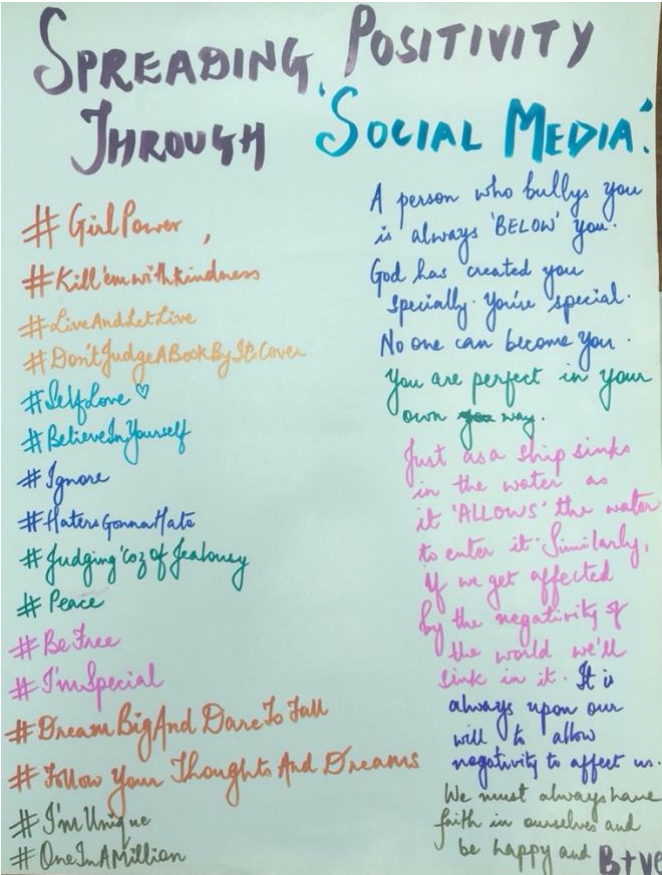 SPREADING POSITIVITY
THROUGH 'SOCIAL MEDIA'.
#GirlPower,
#Kill'emwithkindness
#LiveAndLetLive
#Don'tJudgeABookByItsCover
#SelfLove ♡
#BelieveInYourself
#Ignore
#HatersGonnaHate
#Judging'coz of Jealousy
#Peace
#BeFree
#I'mSpecial
#Dream Big And Dare To Fall
#Follow Your Thoughts And Dreams
#I'mUnique
#OneInAMillion
A person who bullys you
is always 'BELOW' you.
God has created you
specially. You're special.
No one can become you.
You are perfect in your
own way.
Just as a ship sinks
in the water as
it 'ALLOWS' the water
to enter it. Similarly,
if we get affected
by the negativity of
the world we'll
sink in it. It is
always upon our
will to allow
negativity to affect us.
We must always have
faith in ourselves and
be happy and B+ve